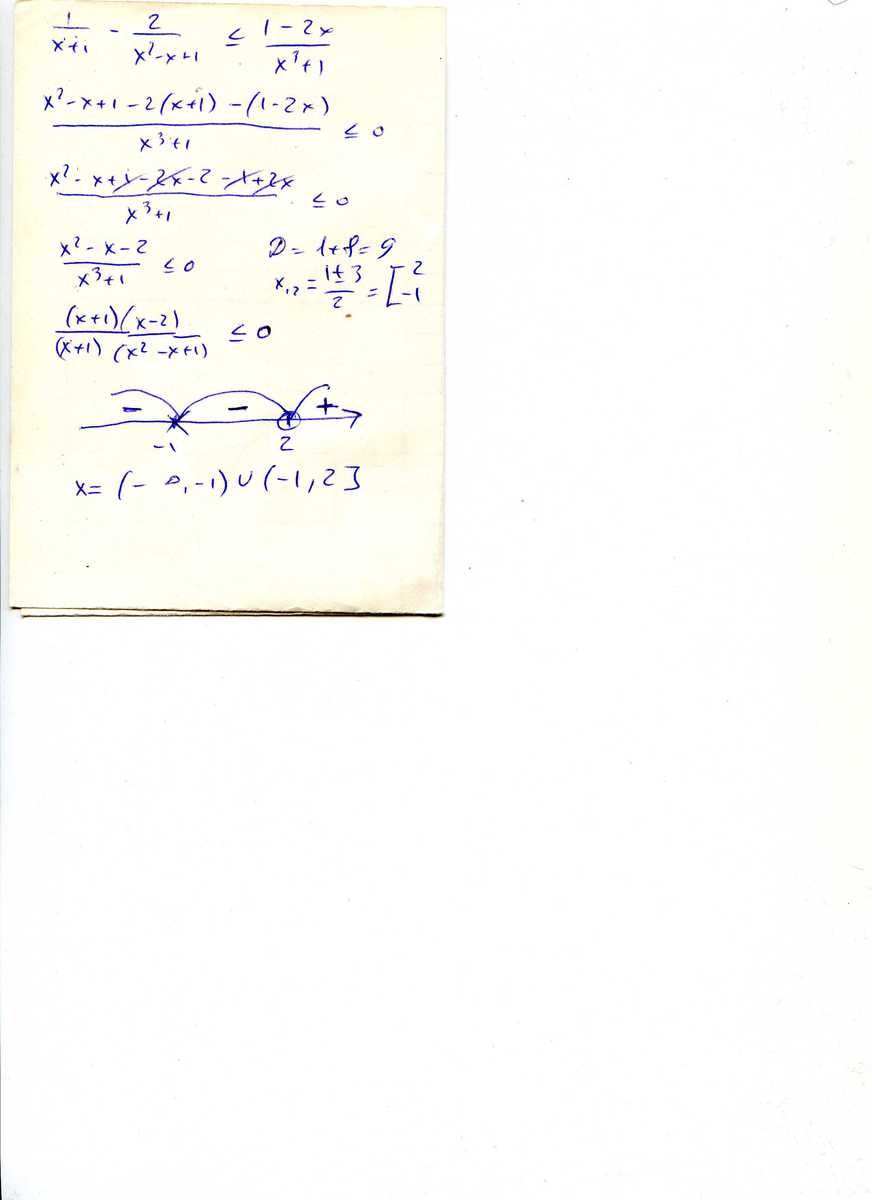 1/(x+1) - 2/(x²-x+1) ≤ (1-2x)/(x³+1)
(x²-x+1-2(x+1)-(1-2x))/(x³+1) ≤ 0
(x²-x+1-2x-2-1+2x)/(x³+1) ≤ 0
(x²-x-2)/(x³+1) ≤ 0 D=1+8=9
x₁,₂ = (1±3)/2 = [2 -1
((x+1)(x-2))/((x+1)(x²-x+1)) ≤ 0
- - +
-1 2
x= (-∞,-1)∪(-1,2]